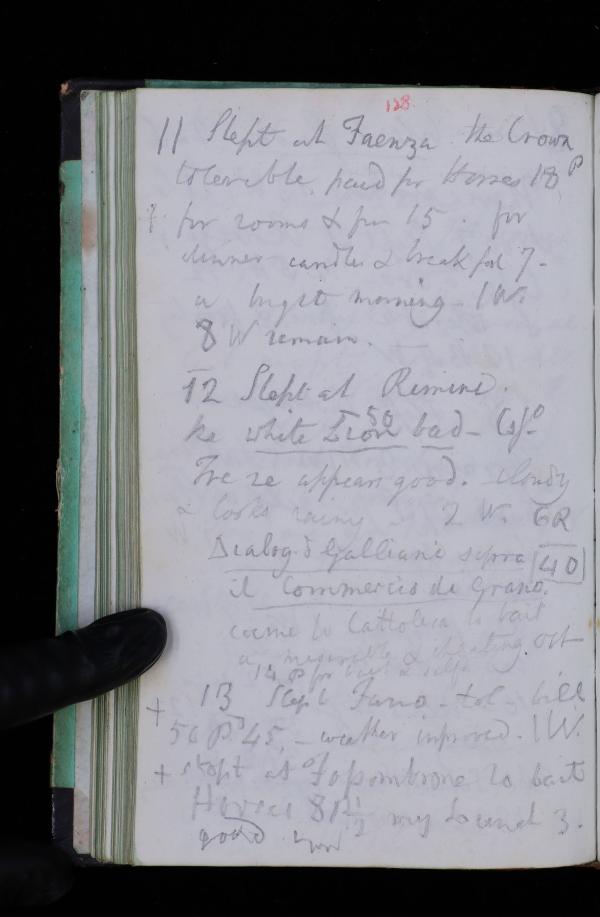 128
11 Slept at Faenza the Crown
tolerable paid for Horses 18 P
+ for rooms & fire 15. for
dinner candles & breakfast 7 -
a bright morning - 1 W.
8 W remain.
12 Slept at Rimini.
he white Lion 50 bad -
appears good. cloudy
& looks rainy - 2 W. 6R
Dialog. d Galliani sopra 40
il Commercio de Grano.
came to Cattolica to bait
a miserable & cheating
14 P for bait &
+ 13 Slept Fano - tol - bill
50 P 45. - weather improved. 1 W.
+ stopt at Fosombrone to bait
Horses 8 1/2 my 3.
good